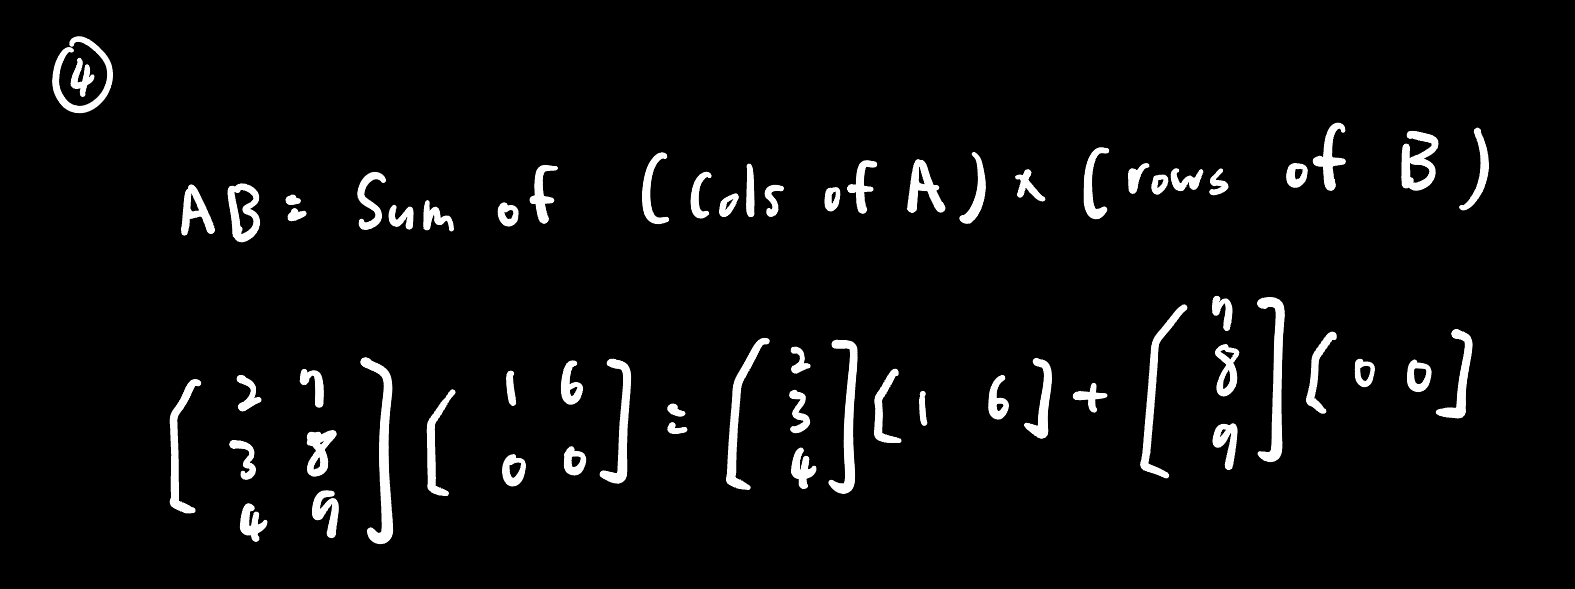 ④
AB = Sum of (Cols of A) × (rows of B)
[2 7; 3 8; 4 9] [1 6; 0 0] = [2; 3; 4] [1 6] + [7; 8; 9] [0 0]